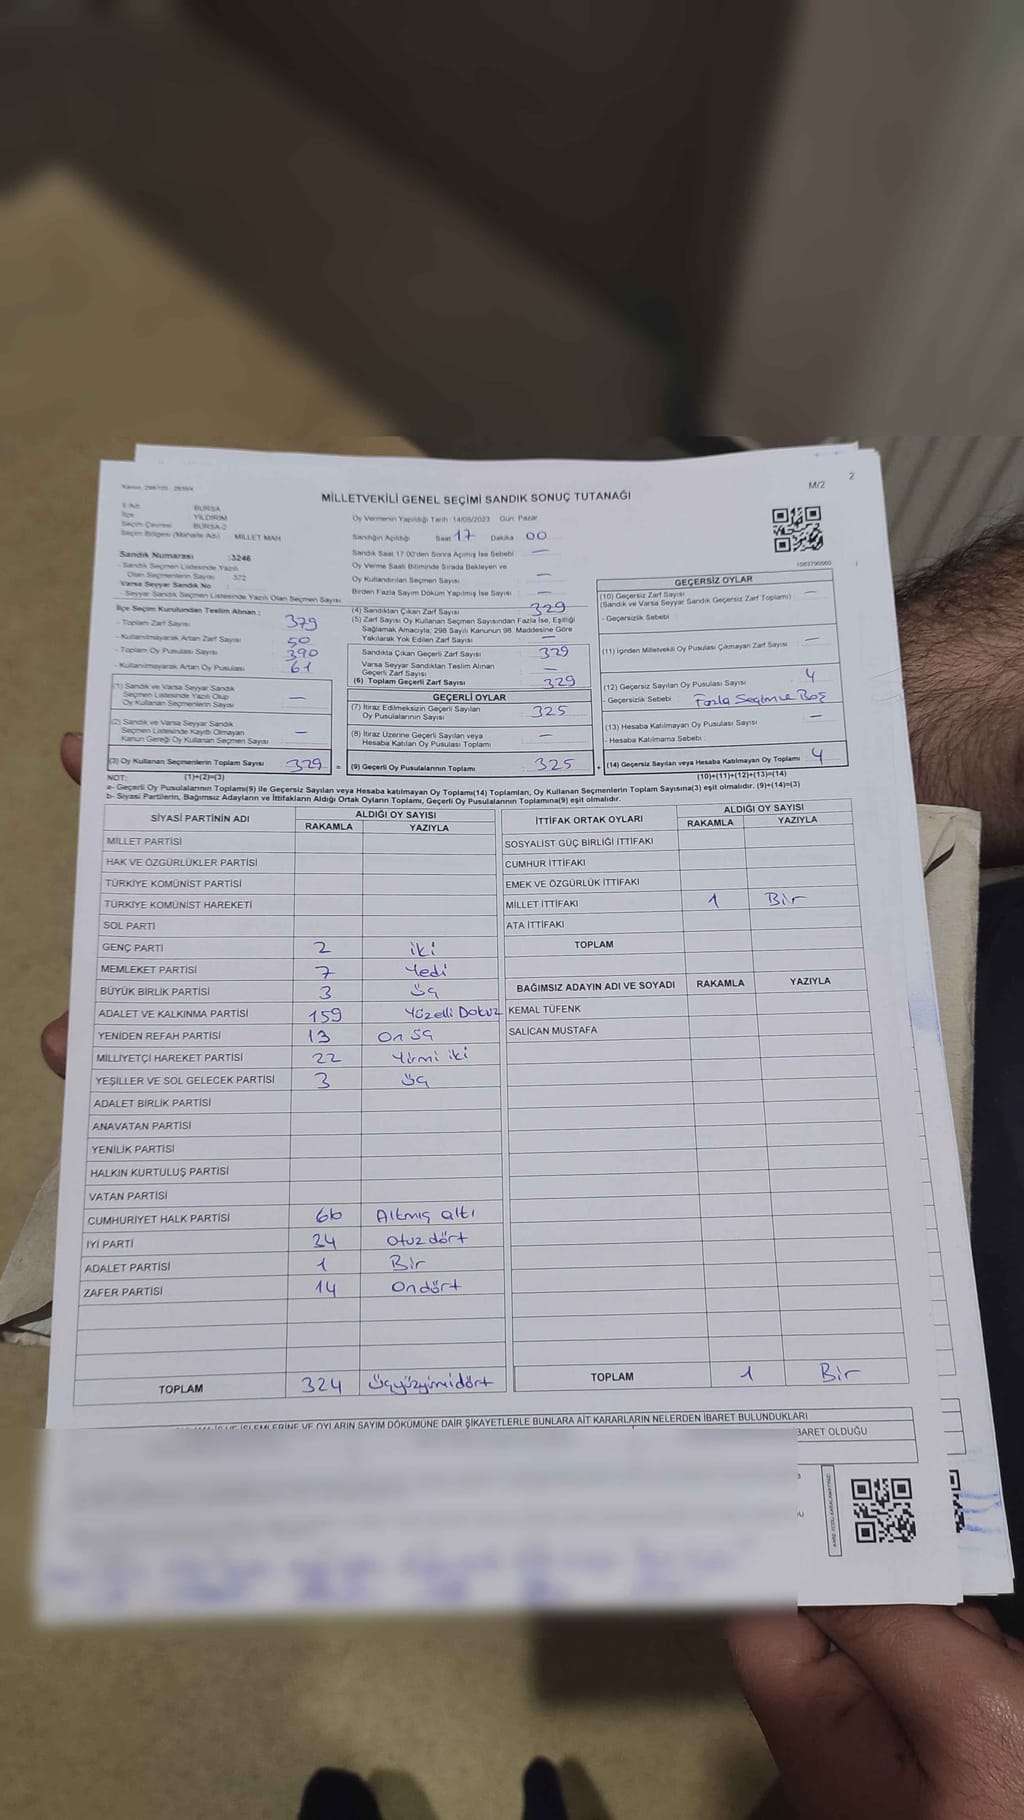 M/2
2
MİLLETVEKİLİ GENEL SEÇİMİ SANDIK SONUÇ TUTANAĞI
İl Adı : BURSA
İlçe : YILDIRIM
Seçim Çevresi : BURSA-2
Seçim Bölgesi (Mahalle Adı) : MİLLET MAH
Oy Vermenin Yapıldığı Tarih :14/05/2023 Gün: Pazar
Sandığın Açıldığı Saat 17 Dakika 00
Sandık Saat 17.00'den Sonra Açılmış İse Sebebi : —
Oy Verme Saati Bitiminde Sırada Bekleyen ve
Oy Kullandırılan Seçmen Sayısı : —
Birden Fazla Sayım Döküm Yapılmış İse Sayısı : —
Sandık Numarası :3246
- Sandık Seçmen Listesinde Yazılı
Olan Seçmenlerin Sayısı : 372
Varsa Seyyar Sandık No :
- Seyyar Sandık Seçmen Listesinde Yazılı Olan Seçmen Sayısı
İlçe Seçim Kurulundan Teslim Alınan :
- Toplam Zarf Sayısı 379
- Kullanılmayarak Artan Zarf Sayısı 50
- Toplam Oy Pusulası Sayısı 390
- Kullanılmayarak Artan Oy Pusulası 61
(1) Sandık ve Varsa Seyyar Sandık
Seçmen Listesinde Yazılı Olup
Oy Kullanan Seçmenlerin Sayısı —
(2) Sandık ve Varsa Seyyar Sandık
Seçmen Listesinde Kayıtlı Olmayan
Kanun Gereği Oy Kullanan Seçmen Sayısı —
(3) Oy Kullanan Seçmenlerin Toplam Sayısı 329 =
(4) Sandıktan Çıkan Zarf Sayısı 329
(5) Zarf Sayısı Oy Kullanan Seçmen Sayısından Fazla İse, Eşitliği
Sağlamak Amacıyla; 298 Sayılı Kanunun 98. Maddesine Göre
Yakılarak Yok Edilen Zarf Sayısı —
Sandıkta Çıkan Geçerli Zarf Sayısı 329
Varsa Seyyar Sandıktan Teslim Alınan
Geçerli Zarf Sayısı —
(6) Toplam Geçerli Zarf Sayısı 329
GEÇERLİ OYLAR
(7) İtiraz Edilmeksizin Geçerli Sayılan
Oy Pusulalarının Sayısı 325
(8) İtiraz Üzerine Geçerli Sayılan veya
Hesaba Katılan Oy Pusulası Toplamı —
(9) Geçerli Oy Pusulalarının Toplamı 325 +
GEÇERSİZ OYLAR
(10) Geçersiz Zarf Sayısı —
(Sandık ve Varsa Seyyar Sandık Geçersiz Zarf Toplamı) :
- Geçersizlik Sebebi :
(11) İçinden Milletvekili Oy Pusulası Çıkmayan Zarf Sayısı —
(12) Geçersiz Sayılan Oy Pusulası Sayısı 4
- Geçersizlik Sebebi : Fazla Seçim ve Boş
(13) Hesaba Katılmayan Oy Pusulası Sayısı —
- Hesaba Katılmama Sebebi :
(14) Geçersiz Sayılan veya Hesaba Katılmayan Oy Toplamı 4
NOT: (1)+(2)=(3) (10)+(11)+(12)+(13)=(14)
a- Geçerli Oy Pusulalarının Toplamı(9) ile Geçersiz Sayılan veya Hesaba katılmayan Oy Toplamı(14) Toplamları, Oy Kullanan Seçmenlerin Toplam Sayısına(3) eşit olmalıdır. (9)+(14)=(3)
b- Siyasi Partilerin, Bağımsız Adayların ve İttifakların Aldığı Ortak Oyların Toplamı, Geçerli Oy Pusulalarının Toplamına(9) eşit olmalıdır.
SİYASİ PARTİNİN ADI ALDIĞI OY SAYISI
RAKAMLA YAZIYLA
MİLLET PARTİSİ
HAK VE ÖZGÜRLÜKLER PARTİSİ
TÜRKİYE KOMÜNİST PARTİSİ
TÜRKİYE KOMÜNİST HAREKETİ
SOL PARTİ
GENÇ PARTİ 2 iki
MEMLEKET PARTİSİ 7 Yedi
BÜYÜK BİRLİK PARTİSİ 3 üç
ADALET VE KALKINMA PARTİSİ 159 Yüzelli Dokuz
YENİDEN REFAH PARTİSİ 13 On üç
MİLLİYETÇİ HAREKET PARTİSİ 22 Yirmi iki
YEŞİLLER VE SOL GELECEK PARTİSİ 3 üç
ADALET BİRLİK PARTİSİ
ANAVATAN PARTİSİ
YENİLİK PARTİSİ
HALKIN KURTULUŞ PARTİSİ
VATAN PARTİSİ
CUMHURİYET HALK PARTİSİ 66 Altmış altı
İYİ PARTİ 34 Otuz dört
ADALET PARTİSİ 1 Bir
ZAFER PARTİSİ 14 Ondört
TOPLAM 324 üçyüzyirmidört
İTTİFAK ORTAK OYLARI ALDIĞI OY SAYISI
RAKAMLA YAZIYLA
SOSYALİST GÜÇ BİRLİĞİ İTTİFAKI
CUMHUR İTTİFAKI
EMEK VE ÖZGÜRLÜK İTTİFAKI
MİLLET İTTİFAKI 1 Bir
ATA İTTİFAKI
TOPLAM
BAĞIMSIZ ADAYIN ADI VE SOYADI RAKAMLA YAZIYLA
KEMAL TÜFENK
SALİCAN MUSTAFA
TOPLAM 1 Bir
İŞLEMLERİNE VE OYLARIN SAYIM DÖKÜMÜNE DAİR ŞİKAYETLERLE BUNLARA AİT KARARLARIN NELERDEN İBARET BULUNDUKLARI
BARET OLDUĞU